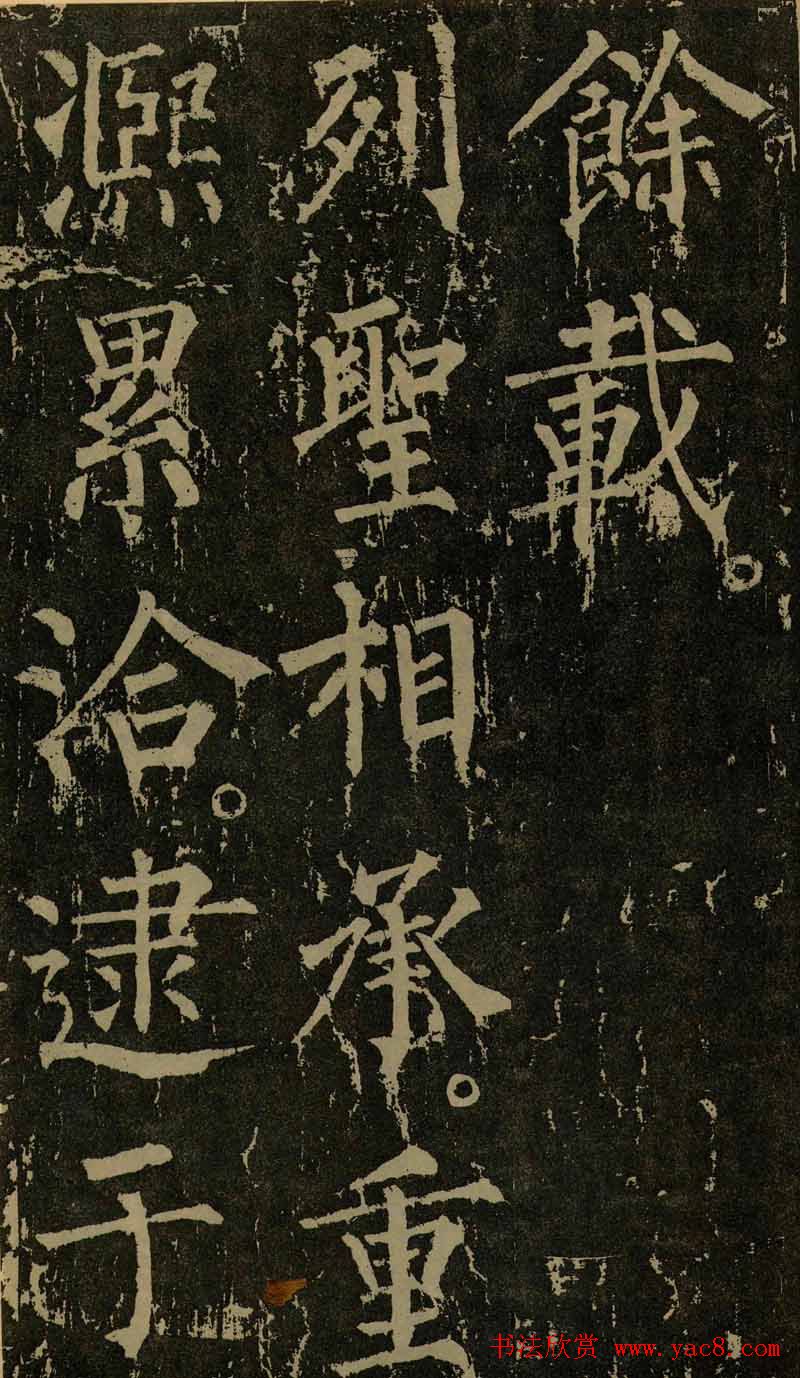 餘載。
列聖相承。重
熙累洽。逮于
书法欣赏 www.yac8.com